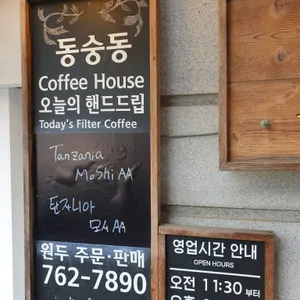 동숭동
Coffee House
오늘의 핸드드립
Today's Filter Coffee
Tanzania
Moshi AA
탄자니아
모시 AA
원두 주문·판매
762-7890
영업시간 안내
OPEN HOURS
오전 11:30 부터